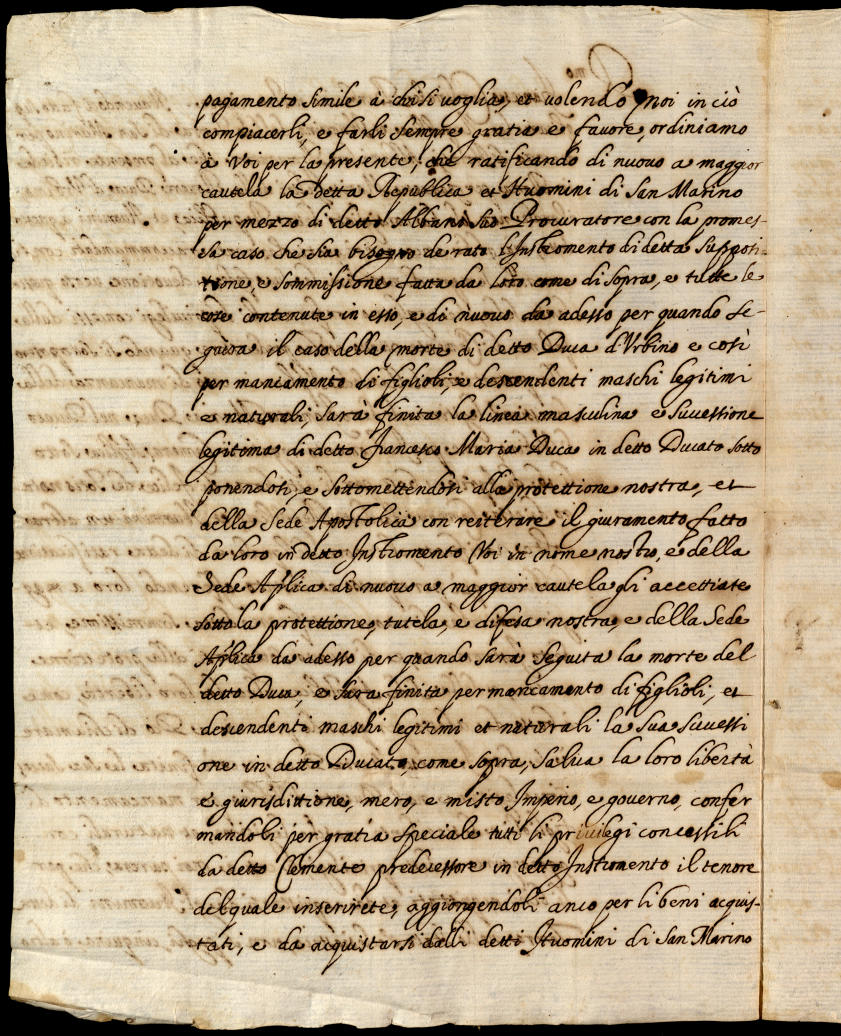 pagamento simile à chi si uoglia, et uolendo noi in ciò
compiacerli, e farli sempre gratia e fauore, ordiniamo
à Voi per la presente, che ratificando di nuouo a maggior
cautela la detta Republica et Huomini di San Marino
per mezzo di detto Albani suo Procuratore con la promes-
sa caso che sia bisogno de rato l'Instromento di detta suppositi-
tione, e sommissione fatta da loro come di sopra, e tutte le
cose contenute in esso, e di nuouo da adesso per quando se-
guirà il caso della morte di detto Duca d'Vrbino e così
per mancamento di figlioli, e descendenti maschi legitimi
e naturali, sarà finita la linea masculina e successione
legitima di detto Francesco Maria Duca in detto Ducato sotto
ponendosi, e sottomettendosi alla protettione nostra, et
della Sede Apostolica con reiterare il giuramento fatto
da loro in detto Instromento Voi in nome nostro, e della
Sede Ap̃lica di nuouo a maggior cautela gli accettiate
sotto la protettione, tutela, e difesa nostra, e della Sede
Ap̃lica da adesso per quando sarà seguita la morte del
detto Duca, e sara finita per mancamento di figlioli, et
descendenti maschi legitimi et naturali la sua successi
one in detto Ducato, come sopra, salua la loro libertà
e giurisdittione, mero, e misto Imperio, e gouerno, confer
mandoli per gratia speciale tutti li priuilegi concessili
da detto Clemente predecessore in detto Instromento il tenore
del quale inserirete, aggiongendoli anco per li beni acquis-
tati, e da acquistarsi dalli detti Huomini di San Marino